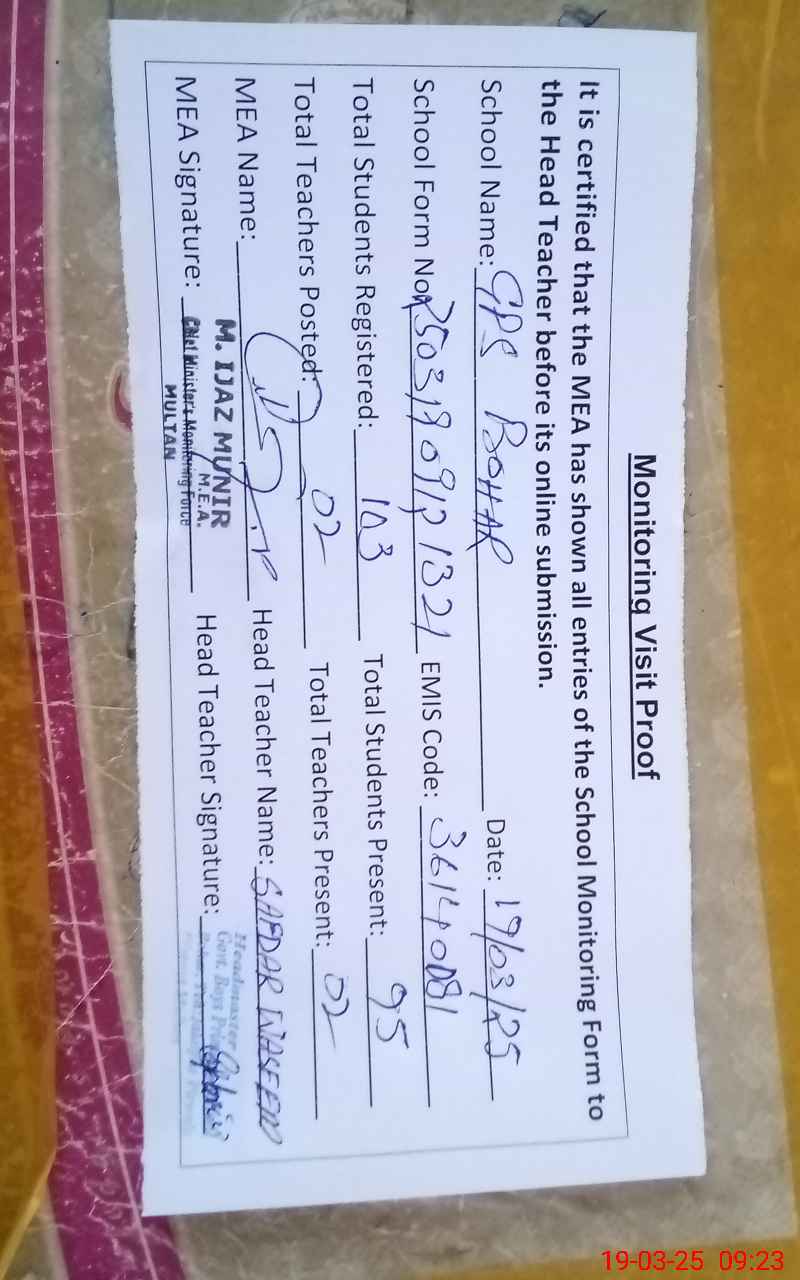 Monitoring Visit Proof
It is certified that the MEA has shown all entries of the School Monitoring Form to
the Head Teacher before its online submission.
School Name: GPS BOHAR Date: 19/03/25
School Form No: EMIS Code:
Total Students Registered: 103 Total Students Present: 95
Total Teachers Posted: 02 Total Teachers Present: 02
MEA Name: Head Teacher Name: SAFDAR WASEEM
M. IJAZ MUNIR
M.E.A.
MEA Signature: Chief Minister's Monitoring Force Head Teacher Signature:
MULTAN
Headmaster
Govt. Boys
19-03-25 09:23